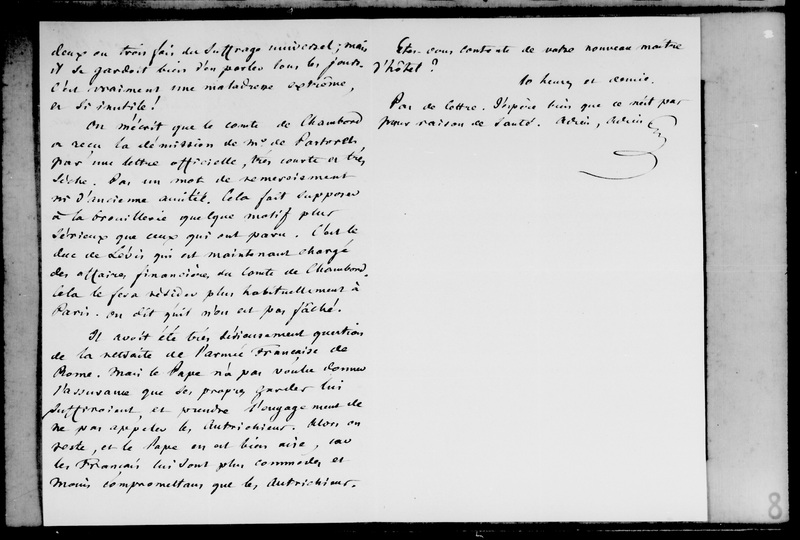 deux ou trois fois du suffrage universel ; mais
il se gardoit bien d'en parler tous les jours.
C'est vraiment une maladresse extrême,
et si inutile !
On m'écrit que le comte de Chambord
a reçu la démission de Mr. de Pastoret
par une lettre officielle, très courte et très
sèche. Pas un mot de remerciement
ni d'ancienne amitié. Cela fait supposer
à la brouillerie quelque motif plus
sérieux que ceux qui ont paru. C'est le
duc de Lévis qui est maintenant chargé
des affaires financières du comte de Chambord.
Cela le fera résider plus habituellement à
Paris. On dit qu'il n'en est pas fâché.
Il avoit été très sérieusement question
de la retraite de l'armée Française de
Rome. Mais le Pape n'a pas voulu donner
l'assurance que ses propres gardes lui
suffiroient, et prendre l'engagement de
ne pas appeler les Autrichiens. Alors on
reste, et le Pape en est bien aise, car
les Français lui sont plus commodes et
moins compromettans que les Autrichiens.
Etes-vous contente de votre nouveau maître
d'hôtel ?
10 heures et demie.
Pas de lettre. J'espère bien que ce n'est pas
pour raison de santé. Adieu, Adieu
8